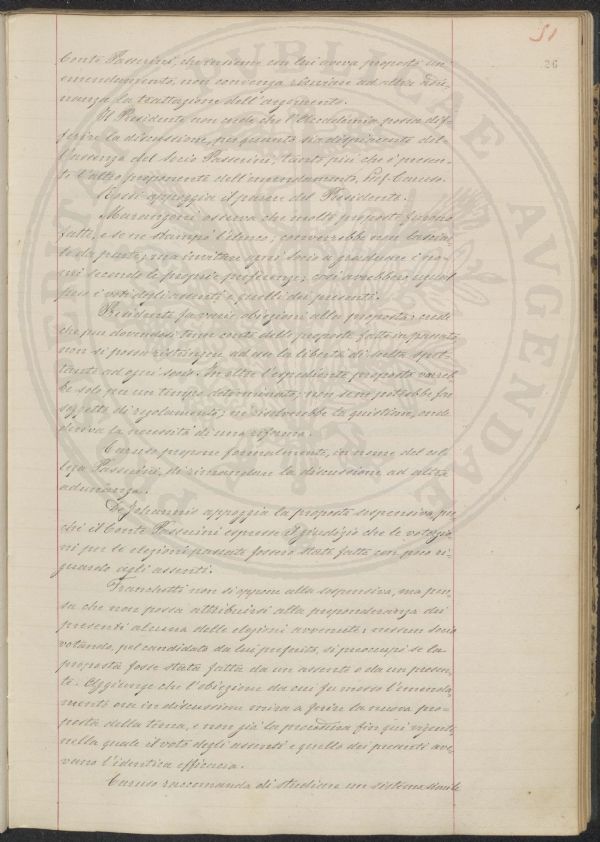 51
26
Conte Passerini, che insieme con lui aveva proposto un
emendamento, non convenga rinviare ad altra adu-
nanza la trattazione dell'argomento.
Il Presidente non crede che l'Accademia possa dif-
ferire la discussione, per quanto sia dispiacente del-
l'assenza del Socio Passerini; tanto più che è presen-
te l'altro proponente dell'emendamento, Prof. Caruso.
appoggia il parere del Presidente.
Marangoni osserva che molte proposte furono
fatte, e se ne stampò l'elenco; converrebbe non lasciar-
le da parte, ma invitare ogni Socio a graduare i no-
mi secondo le proprie preferenze; così avrebbero ugual
peso i voti degli assenti e quelli dei presenti.
Presidente fa varie obiezioni alla proposta: crede
che pur dovendosi tener conto delle proposte fatte in passato
non si possa restringere ad esse la libertà di scelta spet-
tante ad ogni socio. In oltre l'espediente proposto varreb-
be solo per un tempo determinato; non se ne potrebbe far
oggetto di regolamento; nè risolverebbe la questione, onde
deriva la necessità di una riforma.
Caruso propone formalmente, in nome del col-
lega Passerini, di rimandare la discussione ad altra
adunanza.
De Johannis appoggia la proposta sospensiva, per-
chè il Conte Passerini espresse il giudizio che le votazio-
ni per le elezioni passate fossero state fatte con poco ri-
guardo agli assenti.
Franchetti non si oppone alla sospensiva, ma pen-
sa che non possa attribuirsi alla preponderanza dei
presenti alcuna delle elezioni avvenute: nessun socio
votando, pel candidato da lui preferito, si preoccupò se la
proposta fosse stata fatta da un assente o da un presen-
te. Aggiunge che l'obiezione da cui fu mosso l'emenda-
mento ora in discussione mira a ferire la nuova pro-
posta della terna, e non già la procedura fin qui vigente,
nella quale il voto degli assenti e quello dei presenti ave-
vano l'identica efficacia.
Caruso raccomanda di studiare un sistema simile
PUBLICAE
AUGENDAE
PROSPERITATI